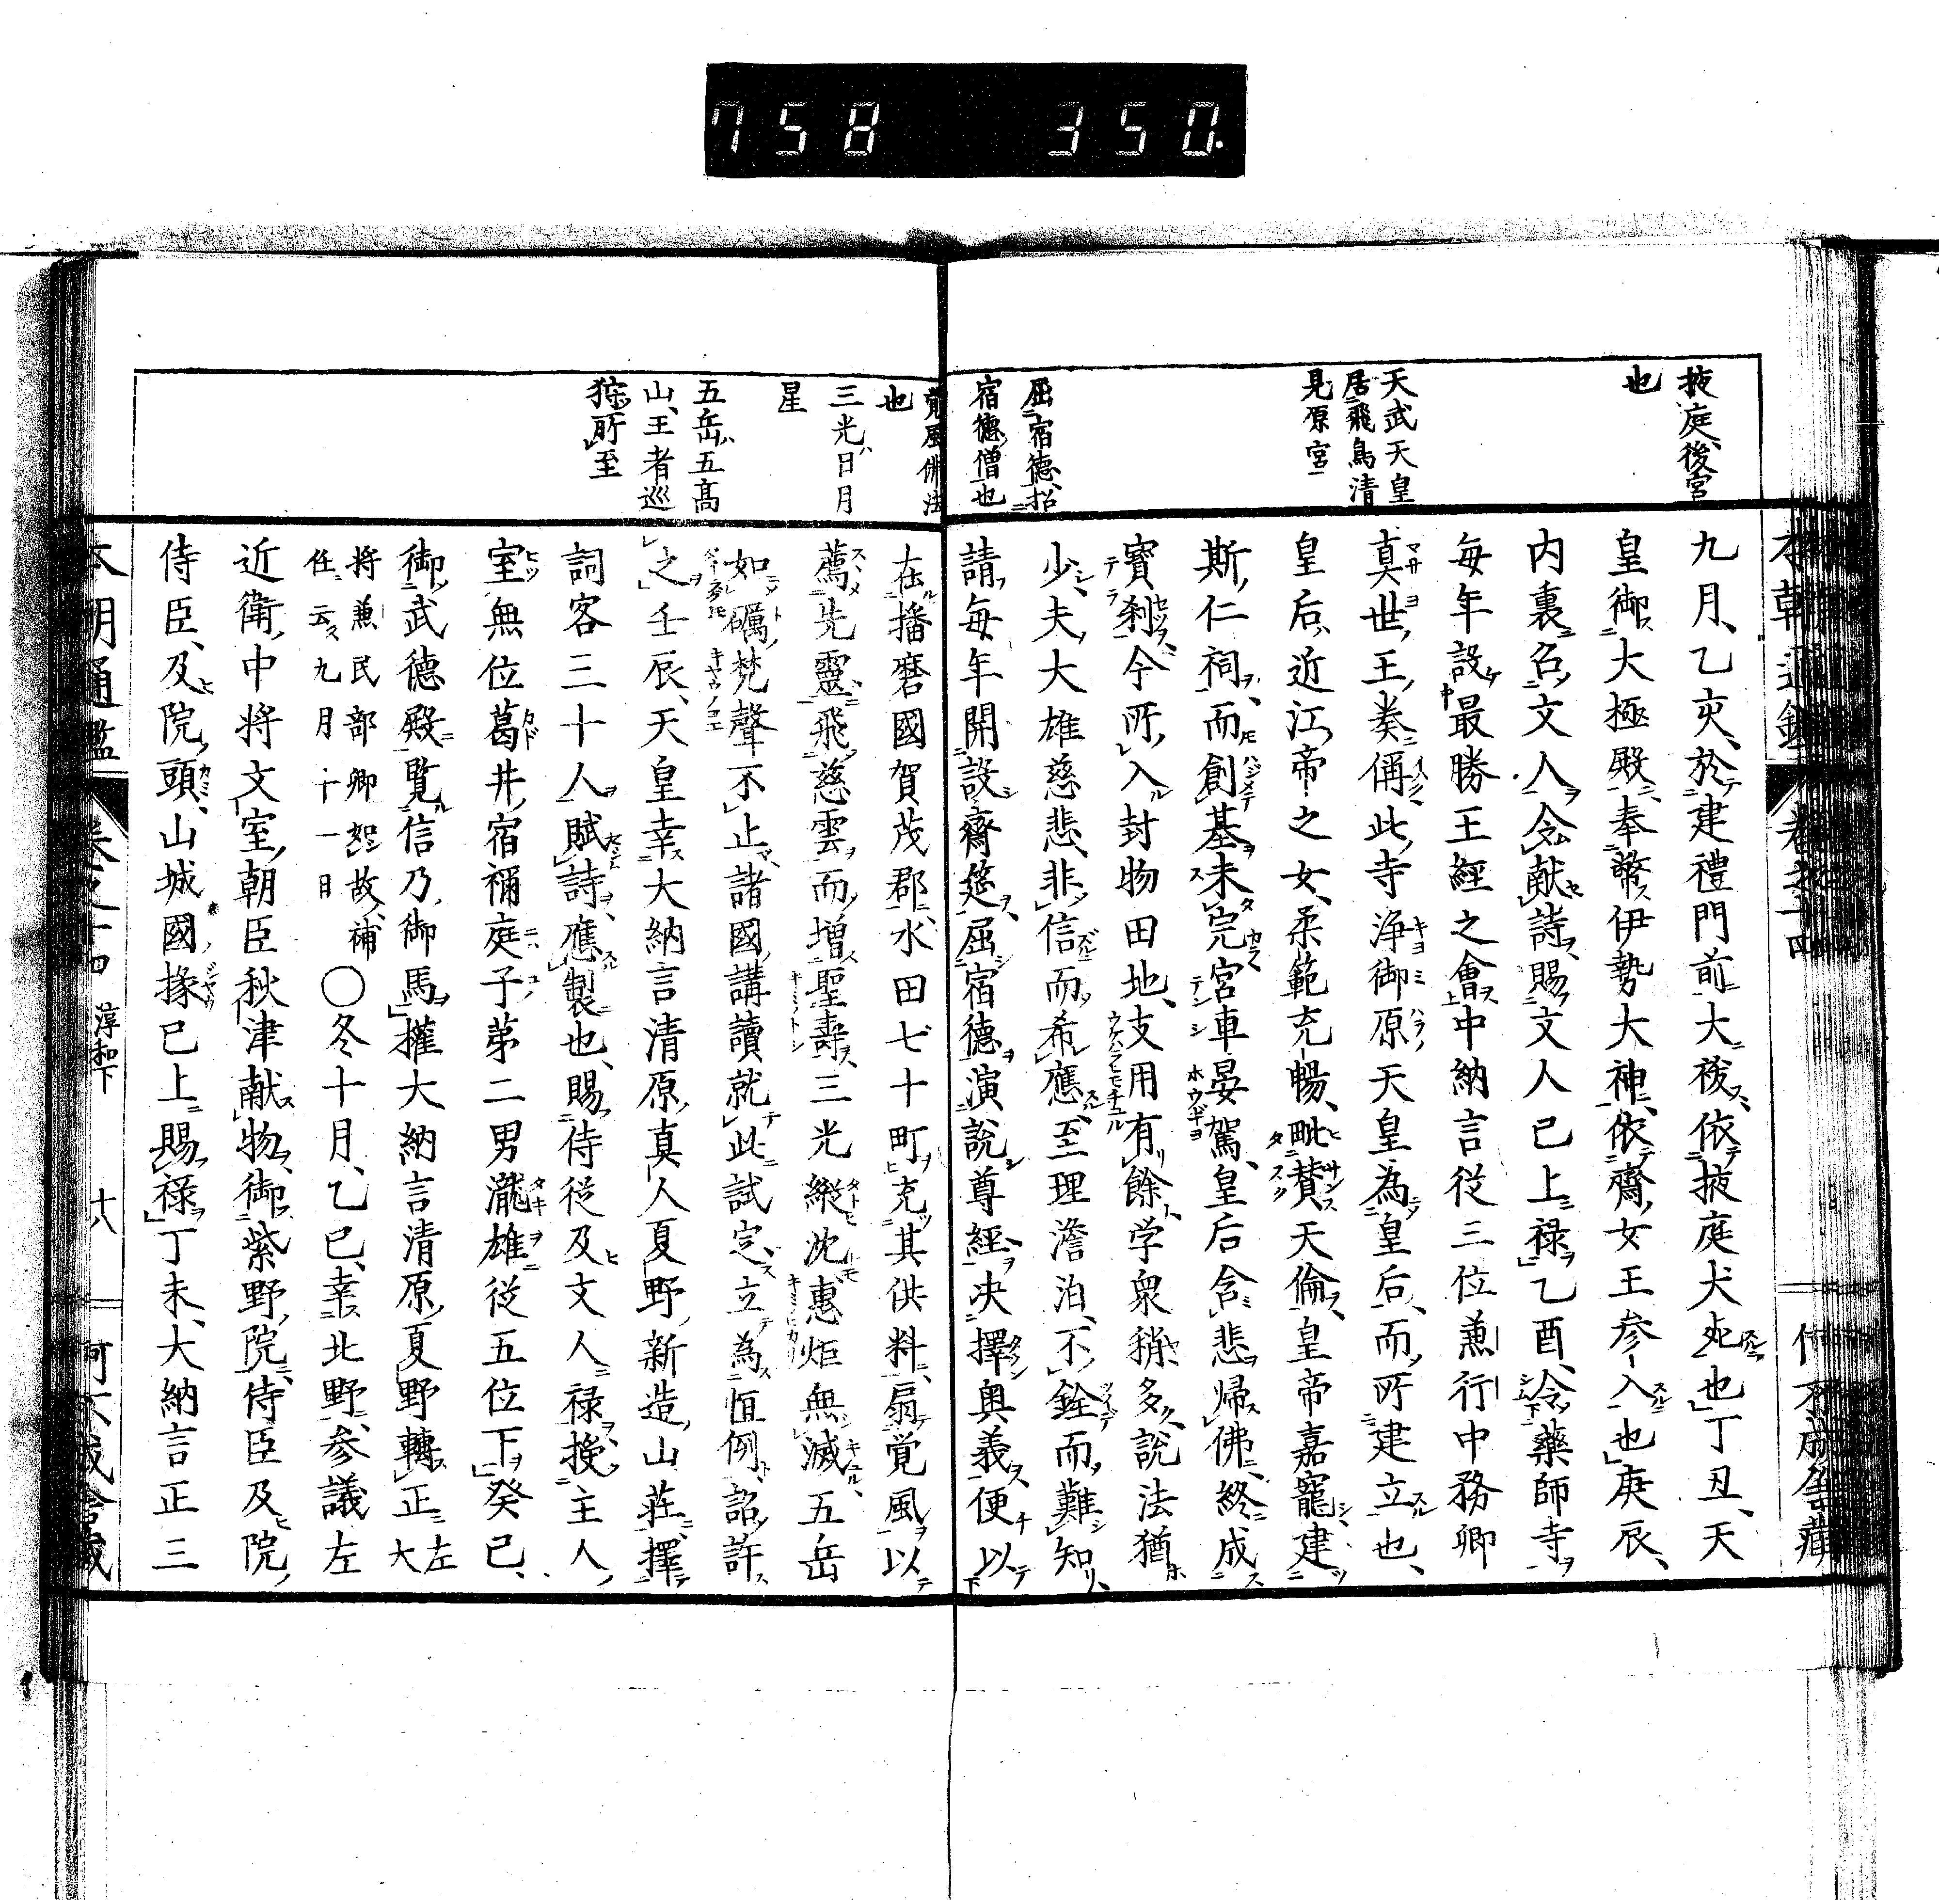 758 350.
掖庭後宮
也
天武天皇
居飛鳥清
見原宮
屈宿德招
宿德僧也
九月乙亥於建禮門前大祓依掖庭犬死也丁丑天
皇御大極殿奉幣伊勢大神依齋女王参入也庚辰
内裏召文人令献詩賜文人已上禄乙酉令藥師寺
每年設最勝王經之會中納言從三位兼行中務卿
真世王奏偁此寺浄御原天皇為皇后而所建立也
皇后近江帝之女柔範充暢毗賛天倫皇帝嘉寵建
斯仁祠而創基未完宮車晏駕皇后含悲歸佛終成
寳刹今所入封物田地支用有餘学衆稍多説法猶
少夫大雄慈悲非信而希應至理澹泊不銓而難知
請每年開設齋筵屈宿德演說尊經决擇奥義便以
覺風佛法
也
三光日月
星
五岳五髙
山王者巡
狩所至
在播磨國賀茂郡水田七十町充其供料扇覚風以
薦先靈飛慈雲而增聖壽三光縱沈惠炬無滅五岳
如礪梵聲不止諸國講讀就此試定立為恒例詔許
之壬辰天皇幸大納言清原真人夏野新造山荘擇
詞客三十人賦詩應製也賜侍從及文人禄授主人
室無位葛井宿祢庭子第二男瀧雄從五位下癸巳
御武德殿覽信乃御馬權大納言清原夏野轉正左大
將兼民部卿恕故補任云九月十一日〇冬十月乙巳幸北野参議左
近衛中将文室朝臣秋津献物御紫野院侍臣及院
侍臣及院頭山城國掾已上賜禄丁未大納言正三
本朝通鑑 卷之十四 淳和下 十八